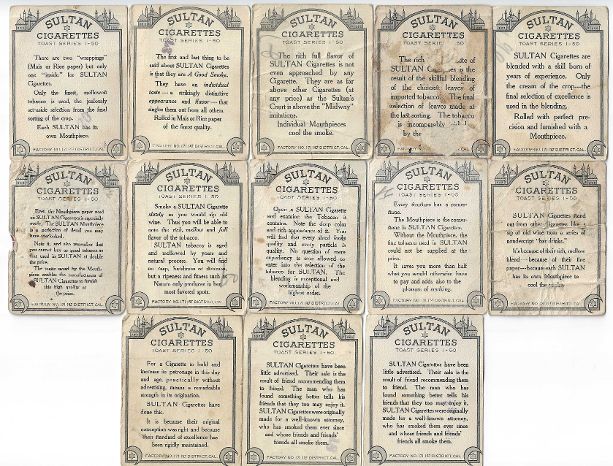 SULTAN
CIGARETTES
TOAST SERIES 1-50
There are two "wrappings"
(Mais or Rice paper) but only
one "inside" for SULTAN
Cigarettes.
Only the finest, mellowest
tobacco is used, the jealously
accurate selection from the final
sorting of the crop.
Each SULTAN has its
own Mouthpiece.
FACTORY NO. 171 1ST DISTRICT, CAL.
SULTAN
CIGARETTES
TOAST SERIES 1-50
The first and best thing to be
said about SULTAN Cigarettes
is that they are A Good Smoke.
They have an individual
taste — a strikingly distinctive
appearance and flavor — that
singles them out from all others.
Rolled in Mais or Rice paper
of the finest quality.
FACTORY NO. 171 1ST DISTRICT, CAL.
SULTAN
CIGARETTES
TOAST SERIES 1-50
The rich full flavor of
SULTAN Cigarettes is not
even approached by any
Cigarette. They are as far
above other Cigarettes (at
any price) as the Sultan's
Court is above the "Midway"
imitations.
Individual Mouthpieces
cool the smoke.
FACTORY NO. 171 1ST DISTRICT, CAL.
SULTAN
CIGARETTES
TOAST SERIES 50
The rich of
SULTAN Cigarettes is the
result of the skillful blending
of the choicest leaves of
imported tobacco. The final
selection of leaves made at
the last sorting. The tobacco
is incomparably
by the
FACTORY NO. 171 1ST DISTRICT, CAL.
SULTAN
CIGARETTES
TOAST SERIES 1-50
SULTAN Cigarettes are
blended with a skill born of
years of experience. Only
the cream of the crop—the
final selection of excellence is
used in the blending.
Rolled with perfect pre-
cision and furnished with a
Mouthpiece.
FACTORY NO. 171 1ST DISTRICT, CAL.
SULTAN
CIGARETTES
TOAST SERIES 1-50
First, the Mouthpiece paper used
on SULTAN Cigarettes is especially
made. The SULTAN Mouthpiece
is a protection of detail you may
have overlooked.
Note it, and also remember that
you cannot buy as good tobacco as
that used in SULTAN at double
the price.
The music saved by the Mouth-
piece enables the manufacturers of
SULTAN Cigarettes to furnish
this high quality at
the price.
FACTORY NO. 171 1ST DISTRICT, CAL.
SULTAN
CIGARETTES
TOAST SERIES 1-50
Smoke a SULTAN Cigarette
slowly as you would sip old
wine. Thus you will be able to
taste the rich, mellow and full
flavor of the tobacco.
SULTAN tobacco is aged
and mellowed by years and
natural process. You will find
no harshness or dryness
but a ripeness and fitness such as
Nature only produces in her
most favored spots.
FACTORY NO. 171 1ST DISTRICT, CAL.
SULTAN
CIGARETTES
TOAST SERIES 1-50
Open a SULTAN Cigarette
and examine the Tobacco it
contains. Note the deep color
and rich appearance of it. You
will find that every shred lives
quality and every particle is
quality. No question of mere
expediency is ever allowed to
enter into the selection of the
tobacco for SULTAN. The
blending is exceptional and
workmanship of the
highest order.
FACTORY NO. 171 1ST DISTRICT, CAL.
SULTAN
CIGARETTES
TOAST SERIES 1-50
Every structure has a corner-
stone.
The Mouthpiece is the corner-
stone in SULTAN Cigarettes.
Without the Mouthpiece, the
fine tobacco used in SULTAN
could not be supplied at the
price.
It saves you more than half
what you would otherwise have
to pay and adds also to the
pleasure of smoking.
FACTORY NO. 171 1ST DISTRICT, CAL.
SULTAN
CIGARETTES
TOAST SERIES 1-50
SULTAN Cigarettes stand
out from other Cigarettes like a
sip of old wine from a series of
nondescript "hot drinks."
It's because of their rich, mellow
blend—because of their fine
paper—because each SULTAN
has its own Mouthpiece to
cool the smoke.
FACTORY NO. 171 1ST DISTRICT, CAL.
SULTAN
CIGARETTES
TOAST SERIES 1-50
For a Cigarette to hold and
increase its patronage in this day
and age, practically without
advertising, means a remarkable
strength in its origination.
SULTAN Cigarettes have
done this.
It is because their original
conception was right and because
their standard of excellence has
been rigidly maintained.
FACTORY NO. 171 1ST DISTRICT, CAL.
SULTAN
CIGARETTES
TOAST SERIES 1-50
SULTAN Cigarettes have been
little advertised. Their sale is the
result of friend recommending them
to friend. The man who has
found something better tells his
friends that they too may enjoy it.
SULTAN Cigarettes were originally
made for a well-known attorney,
who has smoked them ever since
and whose friends and friends'
friends all smoke them.
FACTORY NO. 171 1ST DISTRICT, CAL.
SULTAN
CIGARETTES
TOAST SERIES 1-50
SULTAN Cigarettes have been
little advertised. Their sale is the
result of friend recommending them
to friend. The man who has
found something better tells his
friends that they too may enjoy it.
SULTAN Cigarettes were originally
made for a well-known attorney,
who has smoked them ever since
and whose friends and friends'
friends all smoke them.
FACTORY NO. 171 1ST DISTRICT, CAL.